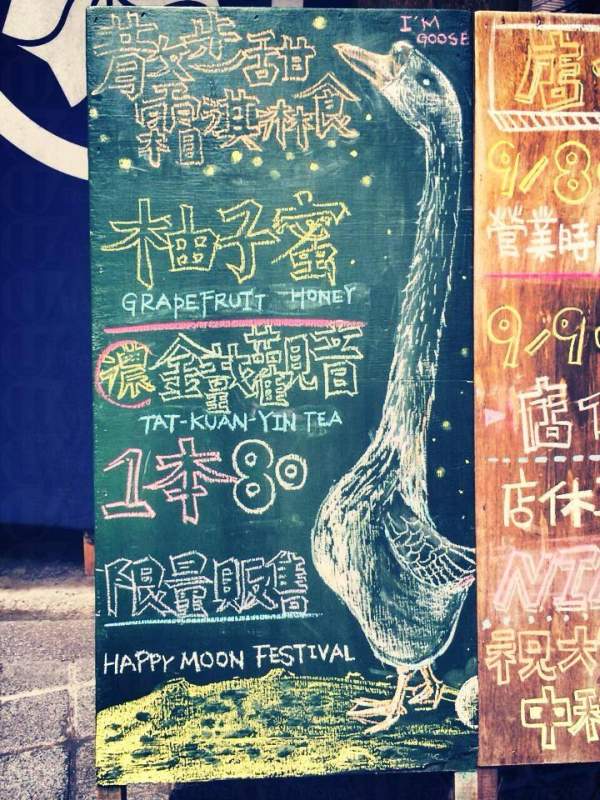 I'M
GOOSE
散步甜
霜淇淋食
柚子蜜
GRAPEFRUIT HONEY
濃 鐵觀音
TAT-KUAN-YIN TEA
1本80
限量販售
HAPPY MOON FESTIVAL
店
9/8
營業時
9/9
店休
祝大
中秋